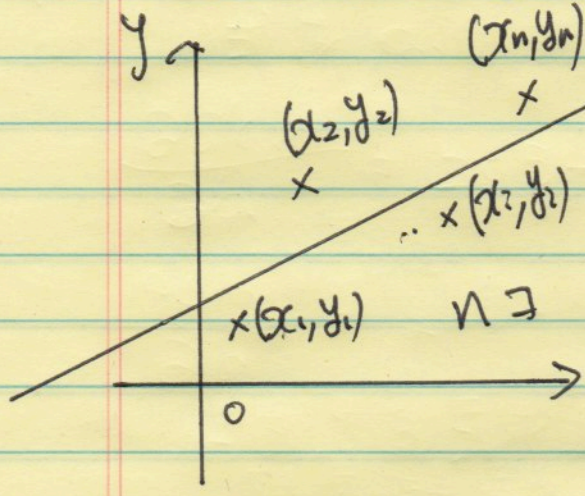 y
(xn, yn)
(x2, y2)
(x2, y2)
(x1, y1)
nコ
0